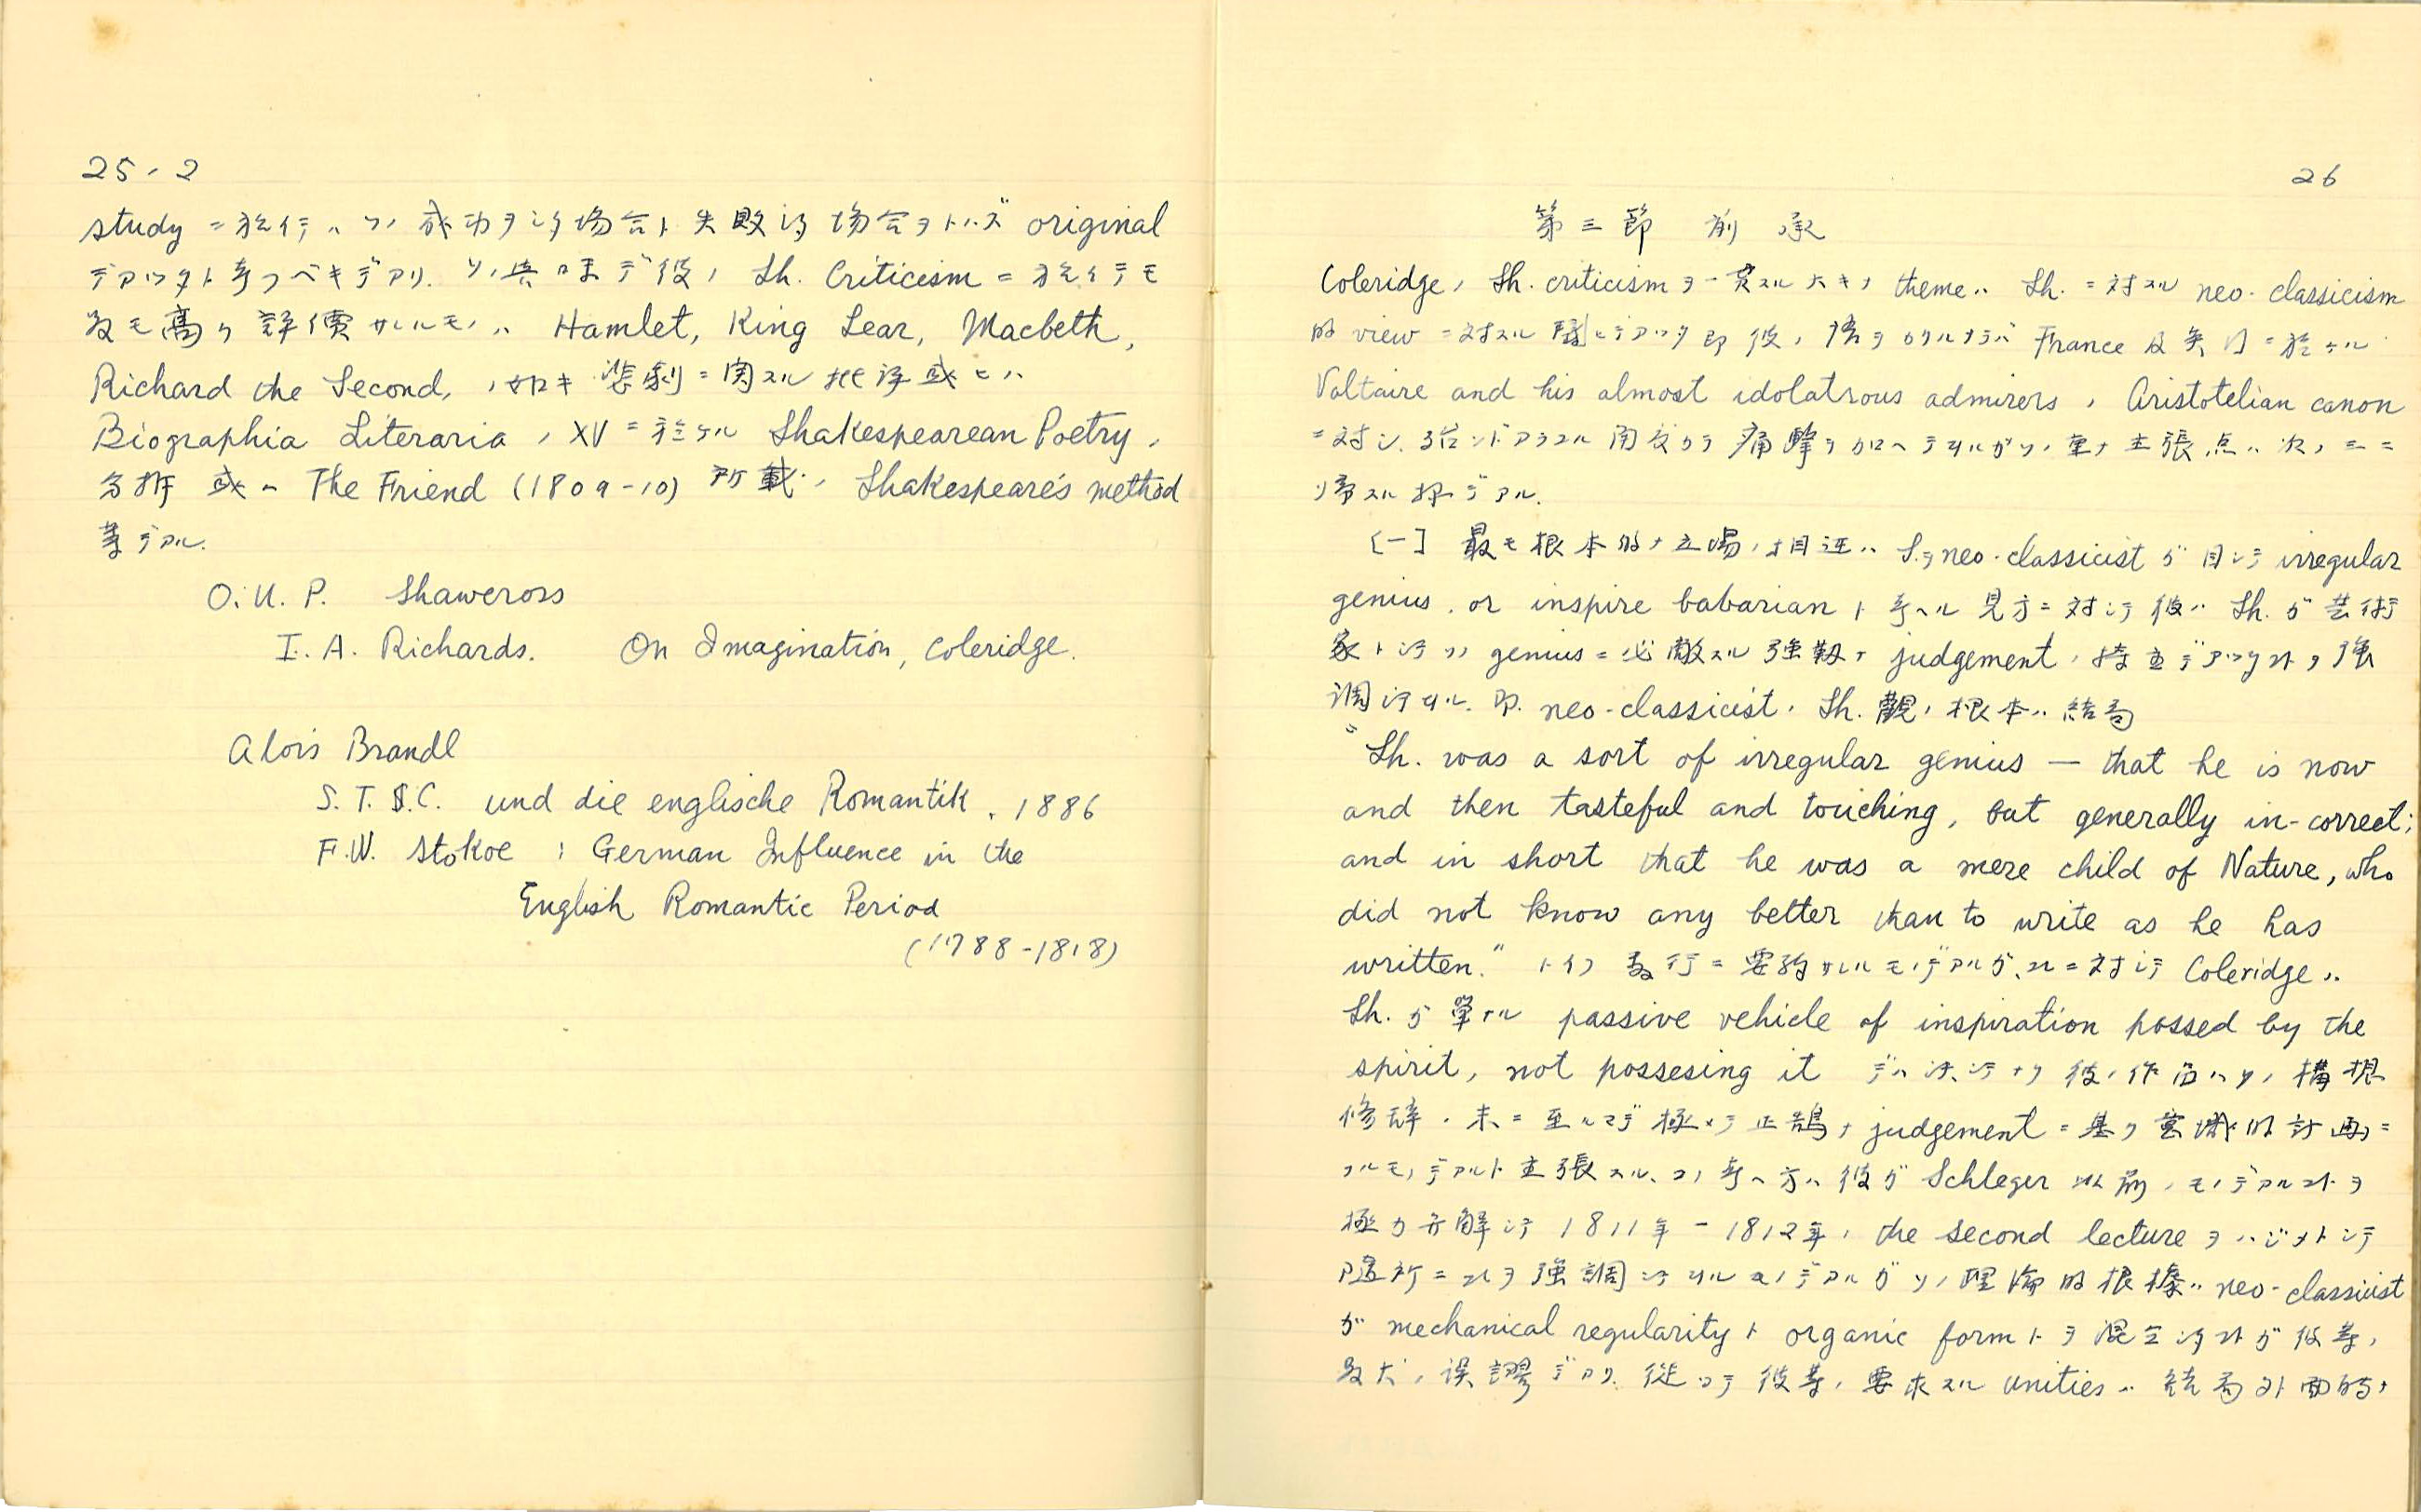 25・2
study ニ於イテハソノ成功ヲシタ場合ト失敗シタ場合ヲトハズ original
デアツタト考フベキデアリ. ソノ意味デ彼ノ Sh. Criticism ニ於イテモ
最モ高ク評價サレルモノハ Hamlet, King Lear, Macbeth,
Richard the Second, ノ如キ悲劇ニ関スル批評或ヒハ
Biographia Literaria ノ XV ニ於ケル Shakespearean Poetry ノ
分析 或ハ The Friend (1809-10) 所載ノ Shakespeare's method
等デアル.
O. U. P. Shawcross
I. A. Richards. On Imagination, Coleridge.
Alois Brandl
S. T. C. und die englische Romantik. 1886
F. W. Stokoe : German Influence in the
English Romantic Period
(1788-1818)
26
第三節 前承
Coleridge ノ Sh. criticism ヲ一貫スル大キナ theme ハ Sh. ニ対スル neo-classicism
的 view ニ対スル闘ヒデアツタ即彼ノ語ヲカリルナラバ France 及英国ニ於ケル
Voltaire and his almost idolatrous admirers ノ Aristotelian canon
ニ対シ. 殆ンドアラユル角度カラ痛撃ヲ加ヘテヰルガソノ重ナ主張点ハ次ノ三ニ
帰スル様デアル.
[一] 最モ根本的ナ立場ノ相違ハ S.ヲ neo-classicist ガ目シテ irregular
genius. or inspire babarian ト考ヘル見方ニ対シテ彼ハ Sh. ガ芸術
家トシテソノ genius ニ匹敵スル強靱ナ judgement ノ持主デアツタコトヲ強
調シテヰル. 即. neo-classicist ノ Sh. 觀ノ根本ハ結局
"Sh. was a sort of irregular genius — that he is now
and then tasteful and touching, but generally in-correct;
and in short that he was a mere child of Nature, who
did not know any better than to write as he has
written." トイフ数行ニ要約サレルモノデアルガ、コレニ対シテ Coleridge ハ
Sh. ガ單ナル passive vehicle of inspiration possed by the
spirit, not possesing it デハ決シテナク彼ノ作品ハソノ構想
修辞ノ末ニ至ルマデ極メテ正鵠ナ judgement ニ基ク意識的計画ニ
ヨルモノデアルト主張スル、コノ考ヘ方ハ彼ガ Schleger 以前ノモノデアルコトヲ
極力弁解シテ 1811年-1812年ノ the second lecture ヲハジメトシテ
隨所ニコレヲ強調シテヰルノデアルガソノ理論的根據ハ neo-classicist
ガ mechanical regularity ト organic form トヲ混同シタコトガ彼等ノ
最大ノ誤謬デアリ. 従ツテ彼等ノ要求スル unities ハ結局外面的ナ